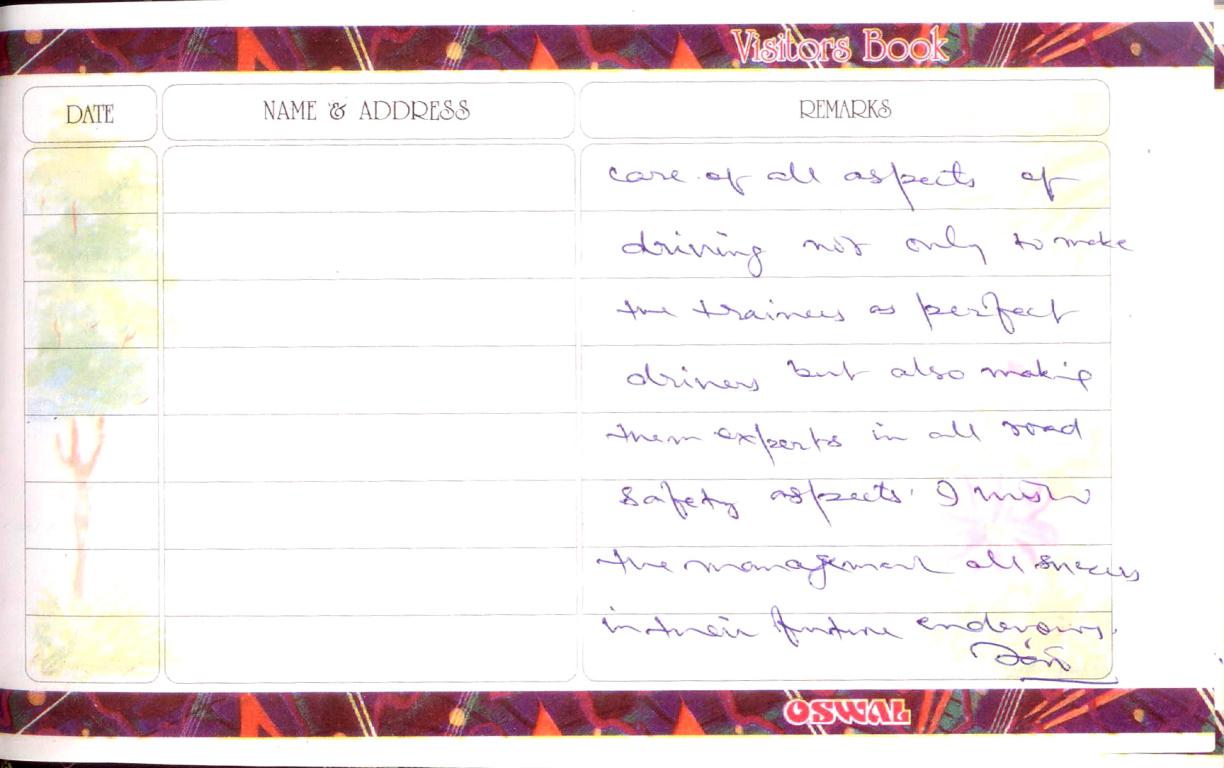 Visitors Book
DATE NAME & ADDRESS REMARKS
care of all aspects of
driving not only to make
the trainees as perfect
drivers but also making
them experts in all road
safety aspects. I wish
the management all success
in their future endevours.
OSWAL